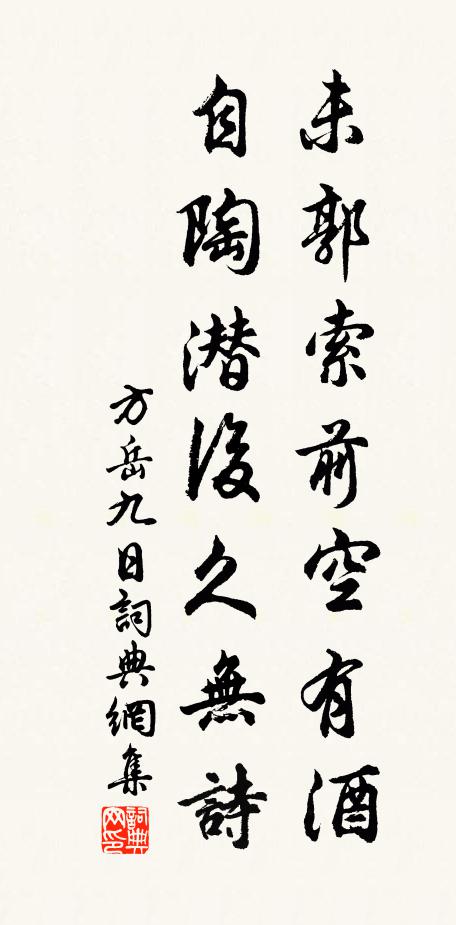 未郭索前空有酒
自陶潜後久無詩
方岳九日詞典網集
詞典网印